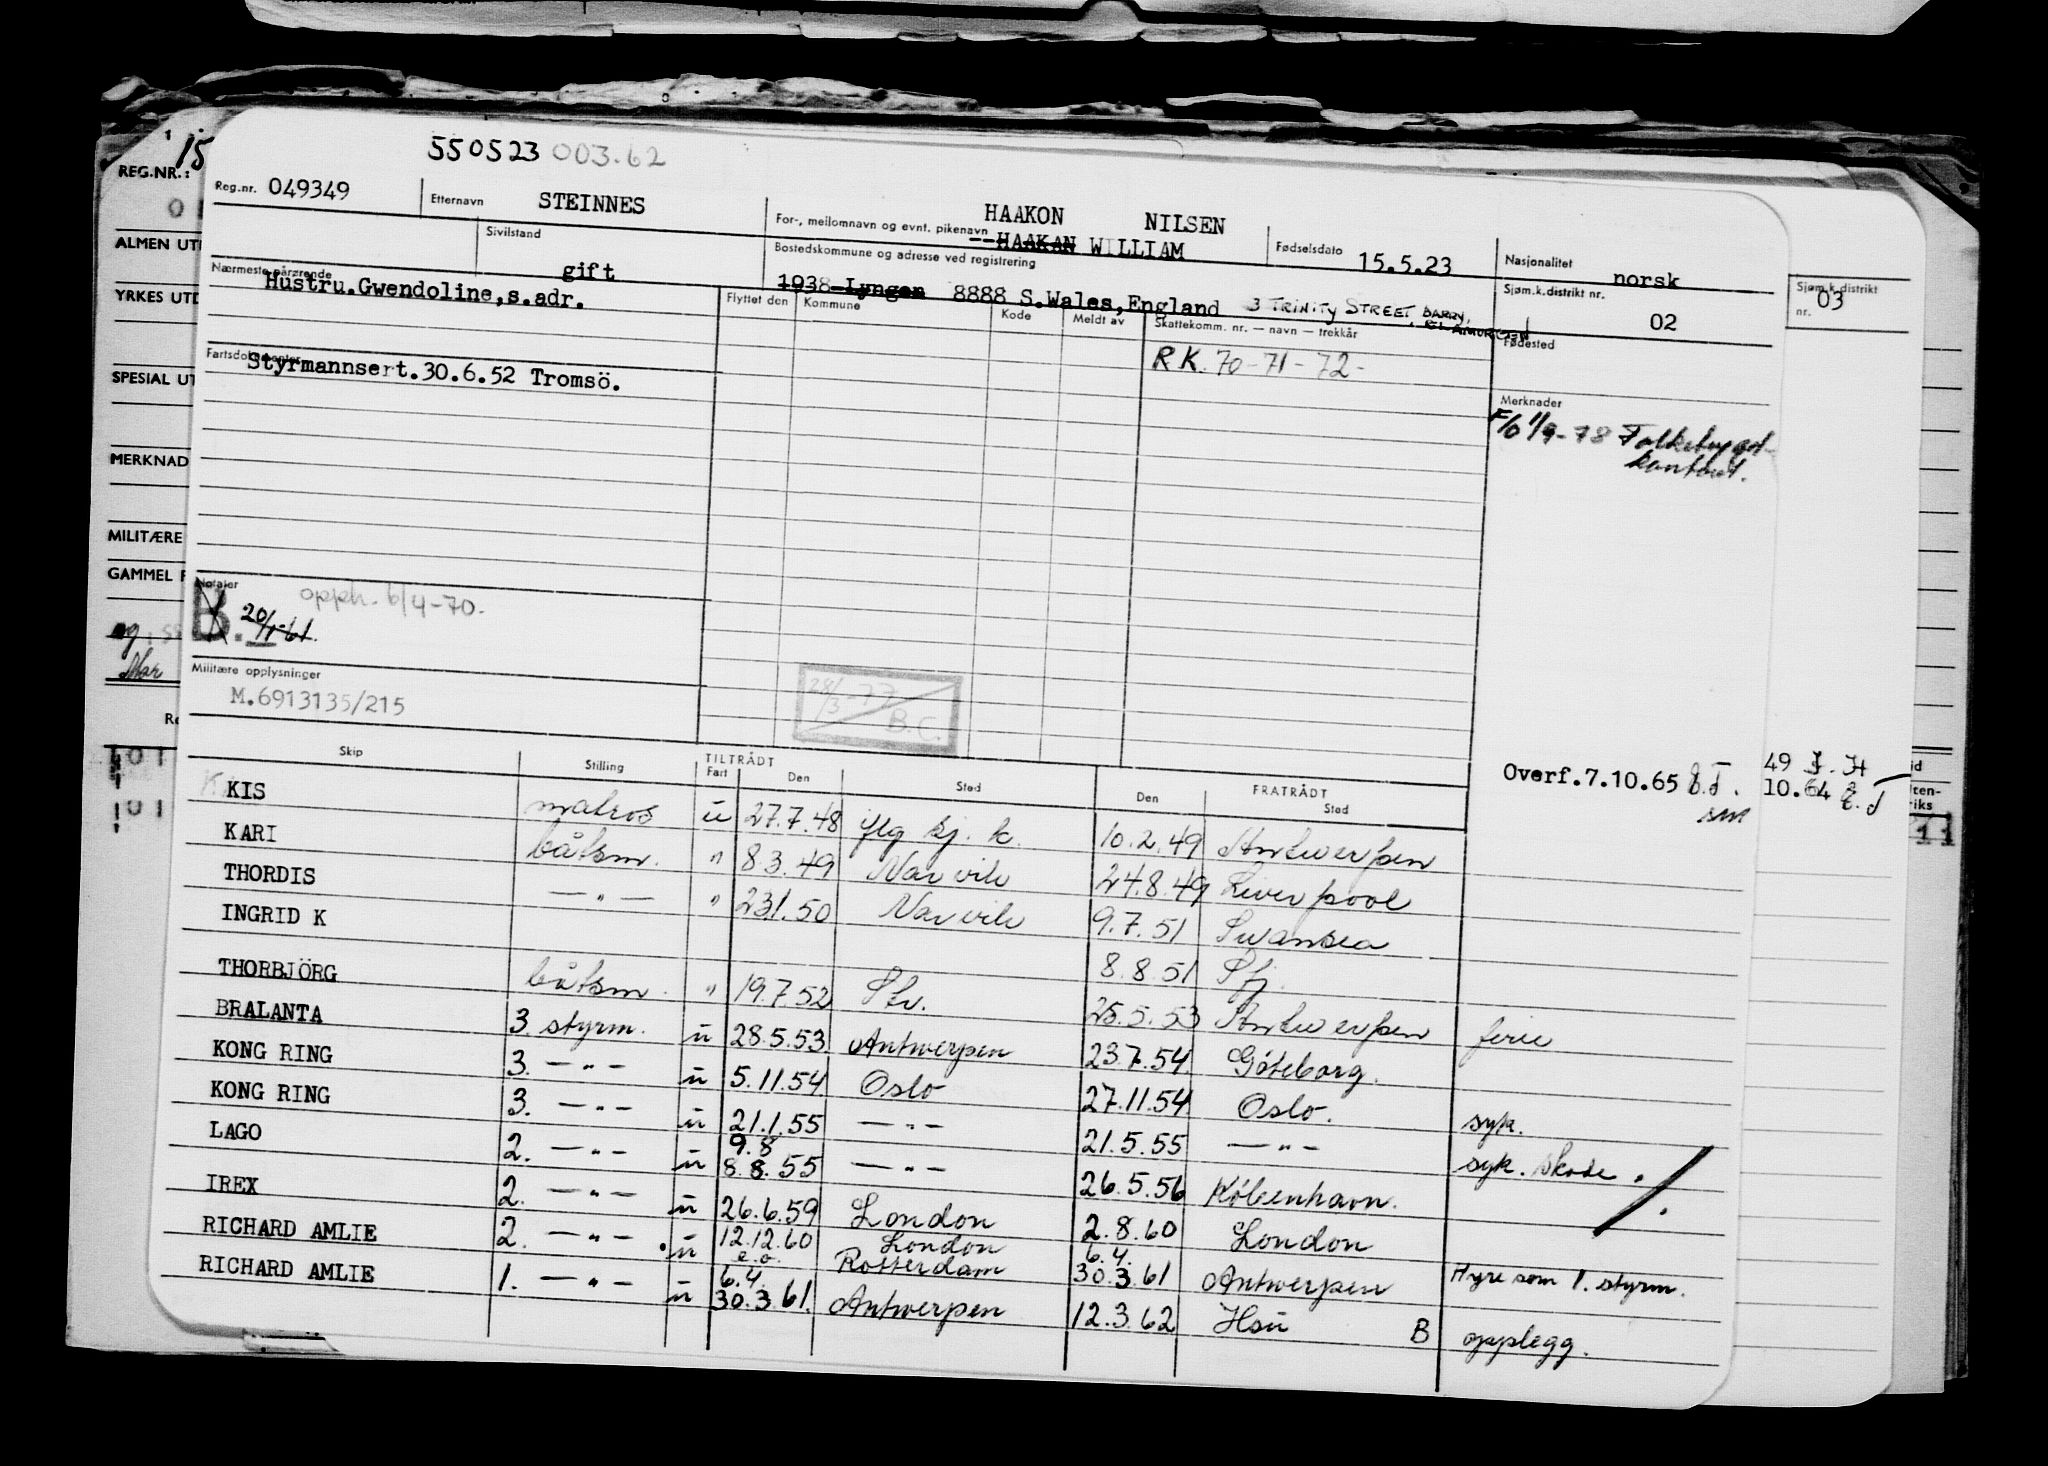 550523 003.62
Reg.nr. 049349 Etternavn STEINNES For-, mellomnavn og evnt. pikenavn HAAKON NILSEN HAAKAN WILLIAM Fødselsdato 15.5.23 Nasjonalitet norsk
Nærmeste pårørende Hustru.Gwendoline,s.adr. Sivilstand gift Bostedskommune og adresse ved registrering 1938 Lyngen 8888 S.Wales,England 3 TRINITY STREET BARRY, GLAMORGEN Sjøm.k.distrikt nr. 02
Sjøm.k.distrikt nr. 03
Flyttet den Kommune Kode Meldt av Skattekomm. nr. — navn — trekkår Fødested
Fartsdokumenter Styrmannsert.30.6.52 Tromsö.
RK. 70-71-72-
Merknader
F/o 1/9-78 Folketrygd-
kontoret.
Notater
B. 20/1-61. opph. 6/4-70.
Militære opplysninger
M.6913135/215
28/3-77 B.C.
Overf.7.10.65
49
10.64
Skip Stilling TILTRÅDT Fart Den Sted FRATRÅDT Den Sted
KIS matros u 27.7.48 10.2.49 Antwerpen
KARI båtsm. " 8.3.49 Narvik 24.8.49 Liverpool
THORDIS —"— " 23.1.50 Narvik 9.7.51 Swansea
INGRID K 8.8.51 Sfj.
THORBJÖRG båtsm. " 19.7.52 Stv. 25.5.53 Antwerpen ferie
BRALANTA 3. styrm. u 28.5.53 Antwerpen 23.7.54 Göteborg.
KONG RING 3. —"— u 5.11.54 Oslo 27.11.54 Oslo. syk.
KONG RING 3. —"— u 21.1.55 —"— 21.5.55 —"— syk. skade.
LAGO 2. —"— u 9.8 8.8.55 —"— 26.5.56 København.
IREX 2. —"— u 26.6.59 London 2.8.60 London
RICHARD AMLIE 2. —"— u 12.12.60 London e.o. Rotterdam 6.4. 30.3.61 Antwerpen Hyre som 1. styrm.
RICHARD AMLIE 1. —"— u 6.4. 30.3.61. Antwerpen 12.3.62 Hsu B opplegg.
15
REG.NR.:
ALMEN UT
YRKES UTD
SPESIAL UT
MERKNAD
MILITÆRE
GAMMEL